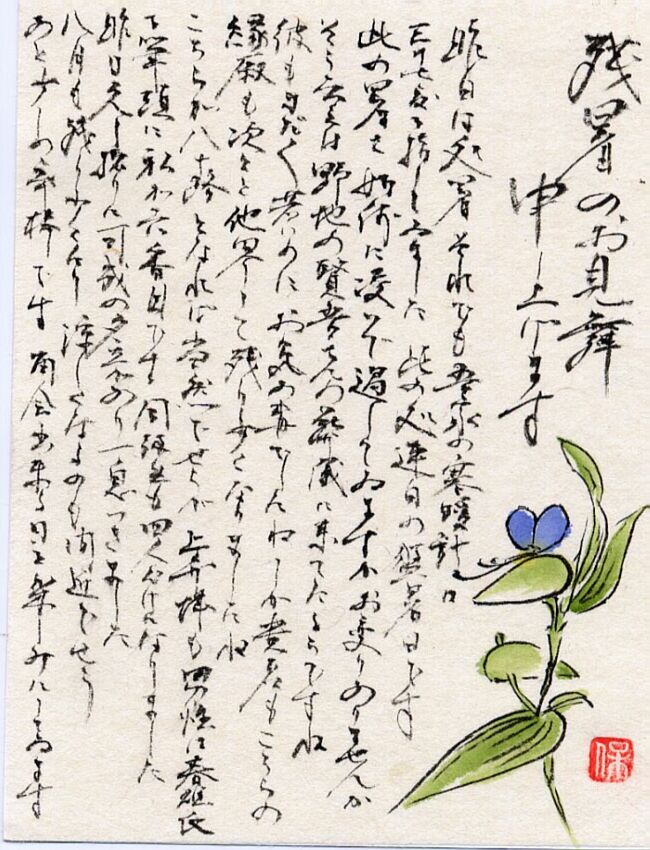 残暑のお見舞
申し上げます
昨日は処暑 それでも吾家の寒暖計は
三十七度を指しました 此の処連日の猛暑日です
此の暑さ 如何に凌いで過してゐますか お変りありませんか
そう云えば野地の賢吾さんの葬儀に来てたそうですね
彼もまだ若いのに お気の毒でしたね しか貴君もこちらの
縁厰も次々と他界して残り少くなりましたね
こちらが八十路となれば当然でせうが 上
を筆頭に私が六番目です 同級生も四人だけになりました
昨日久し振りに の夕立があり一息つきました
八月も残り少くなり 涼しくなるのも間近でせう
あと少しの辛棒です 面会出来る日を楽しみにしてゐます
保